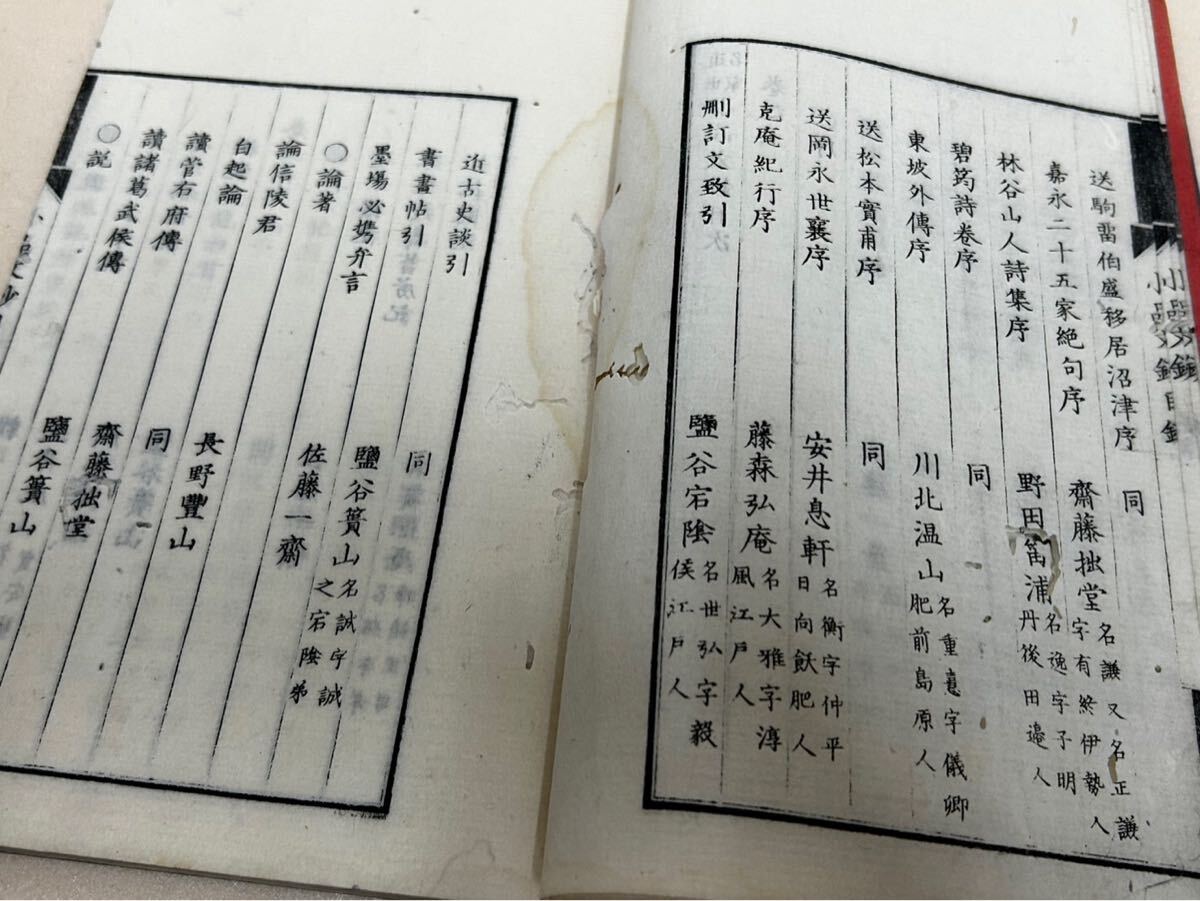 送駒留伯盛移居沼津序 同
嘉永二十五家絶句序 齋藤拙堂 名謙又名正謙字有終伊勢人
林谷山人詩集序 野田笛浦 名逸字子明丹後田邉人
碧筠詩卷序 同
東坡外傳序 川北温山 名重憙字儀卿肥前島原人
送松本實甫序 同
送岡永世襄序 安井息軒 名衡字仲平日向飫肥人
克庵紀行序 藤森弘庵 名大雅字淳風江戸人
删訂文致引 鹽谷宕陰 名世弘字毅侯江戸人
近古史談引
書書帖引 同
墨場必携弁言 鹽谷簣山 名誠字誠之宕陰弟
〇論著
論信陵君 佐藤一齋
白起論
讀菅右府傳 長野豐山
讀諸葛武侯傳 同
〇説 齋藤拙堂
鹽谷簣山